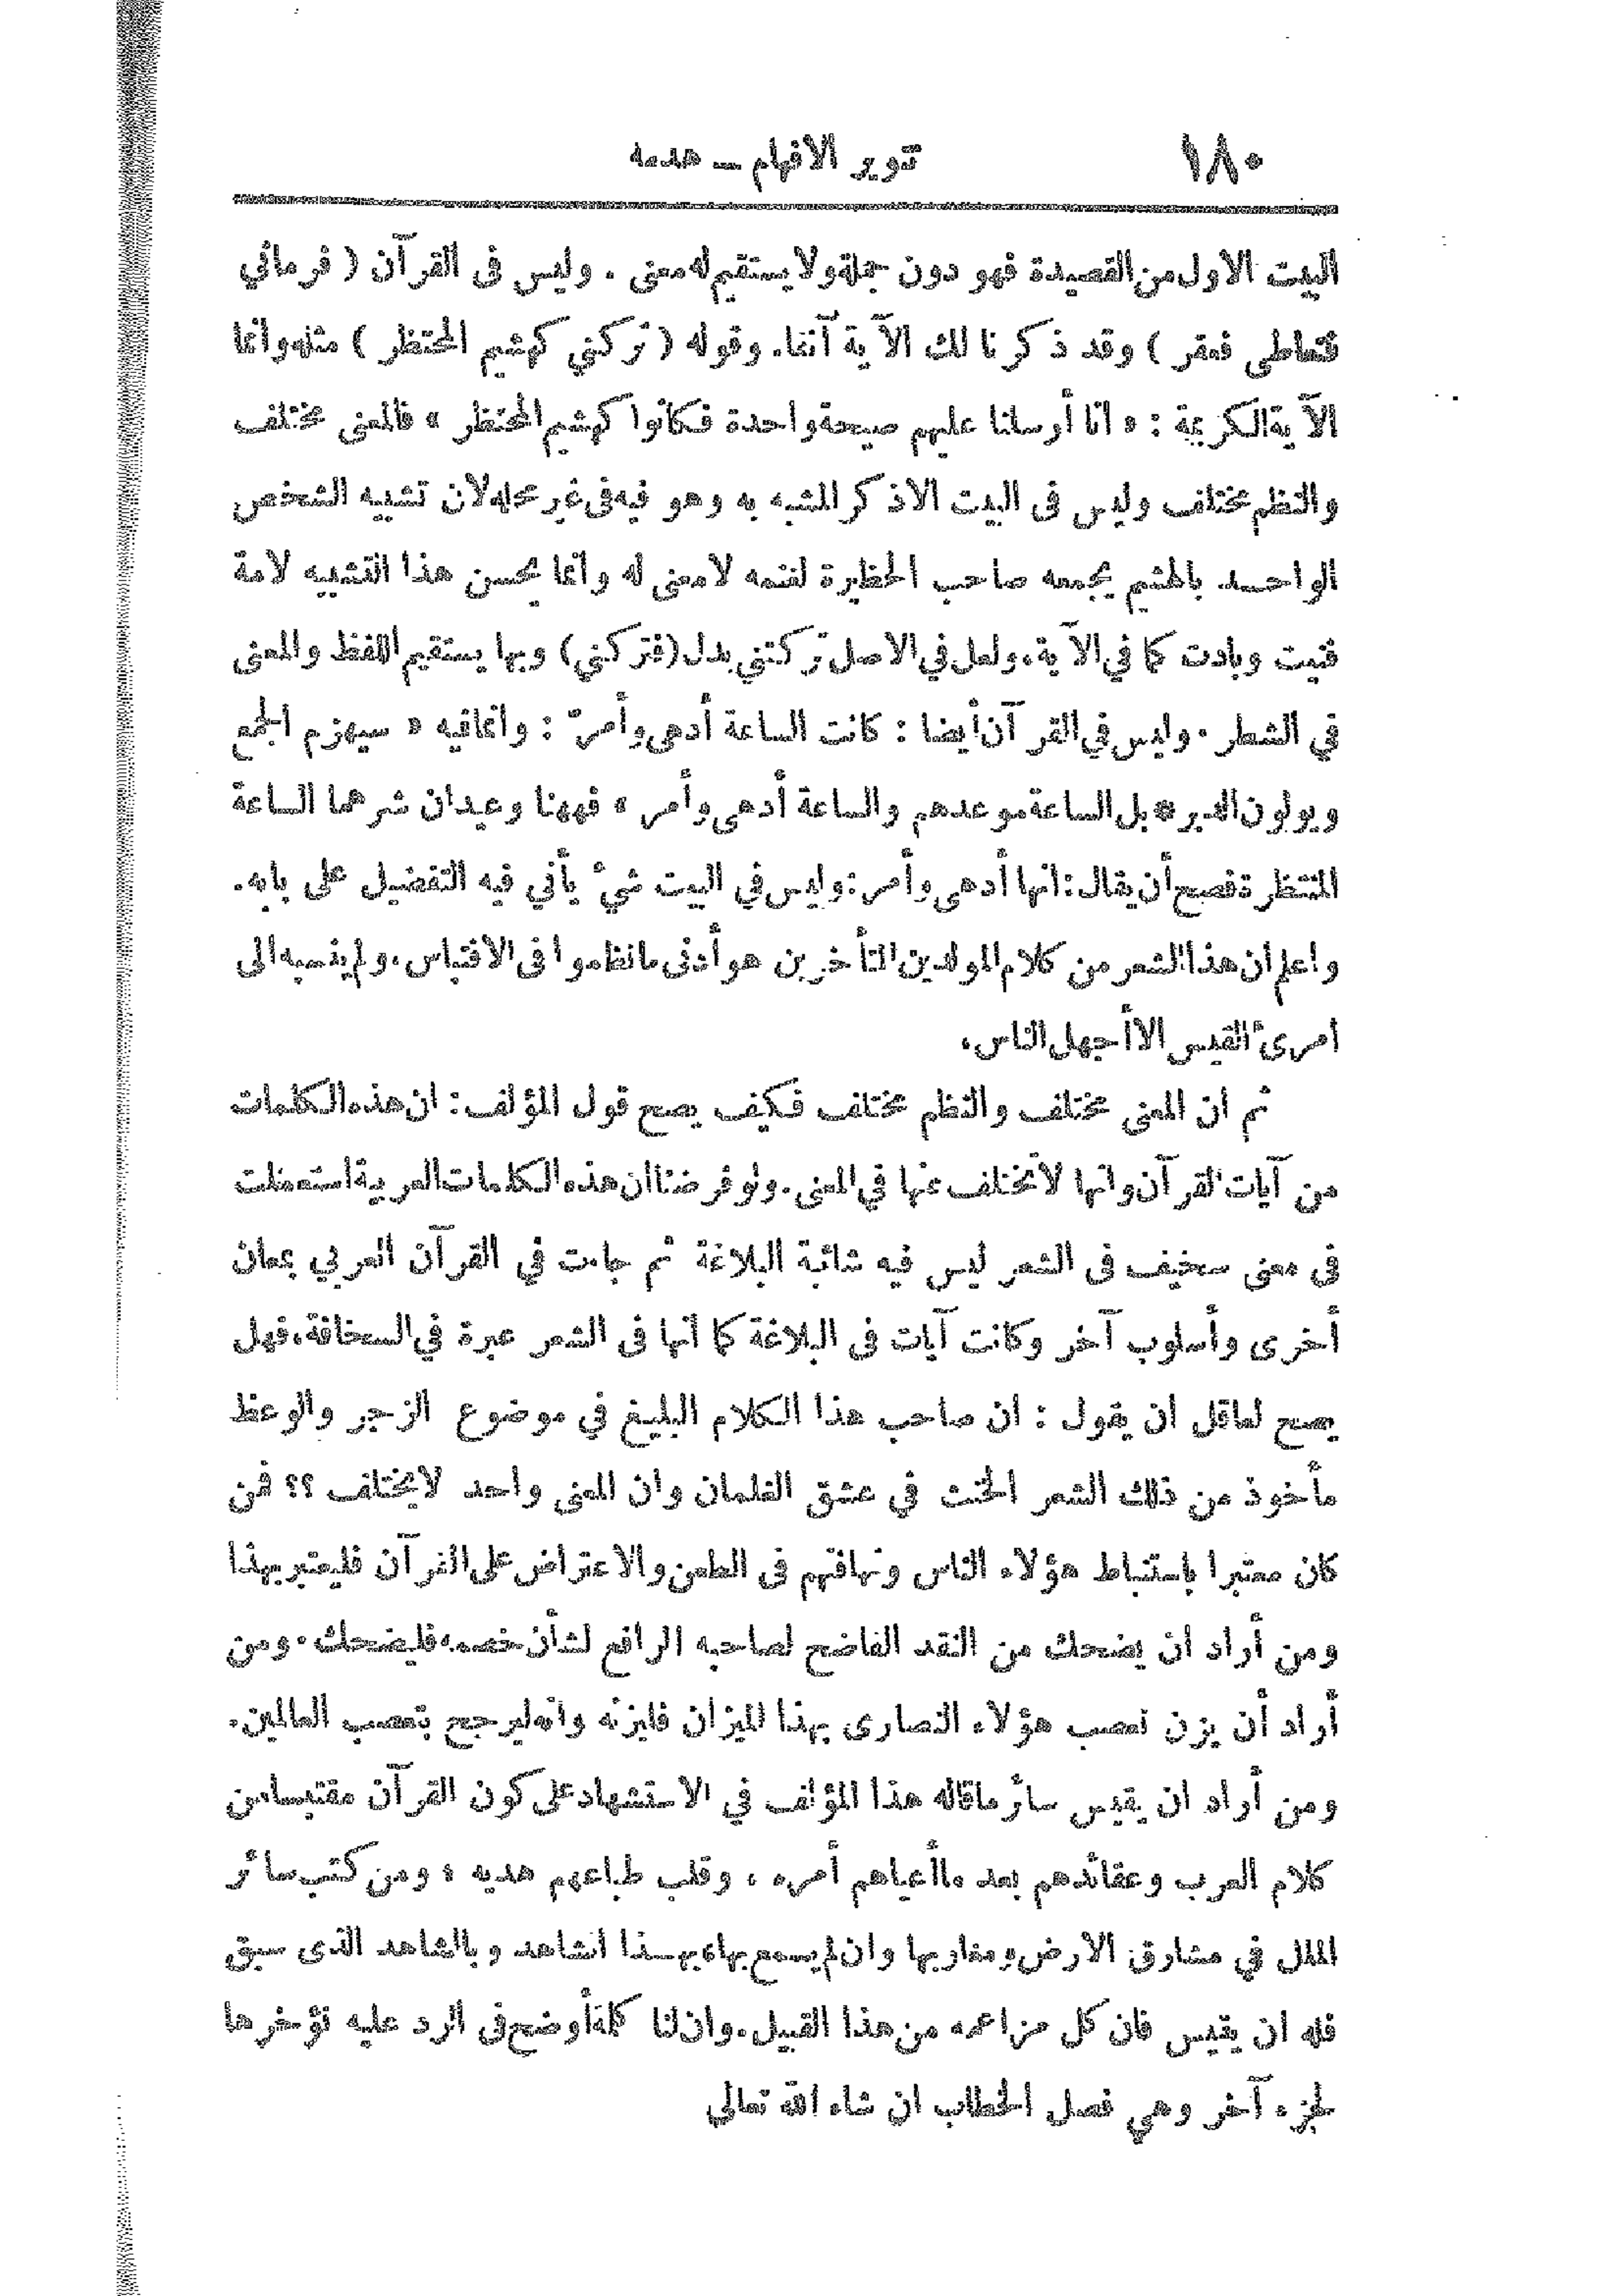 ١٨٠ تنوير الافهام — هدمه
البيت الاول من القصيدة فهو دون جملة ولا يستقيم له معنى . وليس فى القرآن ( فرماني
فتعاطى فعقر ) وقد ذكرنا لك الآية آنفا. وقوله ( تركني كهشيم المحتظر ) مثله وانما
الآية الكريمة : « انا أرسلنا عليهم صيحة واحدة فكانوا كهشيم المحتظر » فالمعنى مختلف
والنظم مختلف وليس فى البيت الا ذكر المشبه به وهو فيه فى غير محله لان تشبيه الشخص
الواحد بالهشيم يجمعه صاحب الحظيرة لغنمه لا معنى له وانما يحسن هذا التشبيه لامة
فنيت وبادت كما في الآية، ولعل في الاصل تركتني بدل (فتركني) وبها يستقيم اللفظ والمعنى
في الشطر . وليس في القرآن أيضا : كانت الساعة أدهى وأمرّ : وانما فيه « سيهزم الجمع
ويولون الدبر * بل الساعة موعدهم والساعة أدهى وأمر » فههنا وعيدان شرهما الساعة
المنتظرة فصح أن يقال : انها أدهى وأمر : وليس في البيت شيء يأتي فيه التفضيل على بابه .
واعلم ان هذا الشعر من كلام المولدين المتأخرين هو أدنى ما نظموا فى الاقتباس، ولم ينسبه الى
امرئ القيس الا أجهل الناس،
ثم ان المعنى مختلف والنظم مختلف فكيف يصح قول المؤلف : ان هذه الكلمات
من آيات القرآن وانها لا تختلف عنها في المعنى . ولو فرضنا ان هذه الكلمات العربية استعملت
فى معنى سخيف فى الشعر ليس فيه شائبة البلاغة ثم جاءت في القرآن العربي بمعان
أخرى وأسلوب آخر وكانت آيات فى البلاغة كما انها فى الشعر عبرة في السخافة، فهل
يصح لعاقل ان يقول : ان صاحب هذا الكلام البليغ في موضوع الزجر والوعظ
مأخوذ من ذلك الشعر الخنث في عشق الغلمان وان المعنى واحد لا يختلف ؟؟ فمن
كان معتبرا باستنباط هؤلاء الناس وتهافتهم فى الطعن والاعتراض على القرآن فليعتبر بهذا
ومن أراد ان يضحك من النقد الفاضح لصاحبه الرافع لشأن خصمه فليضحك . ومن
أراد أن يزن تعصب هؤلاء النصارى بهذا الميزان فليزنه وانه ليرجح بتعصب العالمين .
ومن أراد ان يقيس سائر ما قاله هذا المؤلف في الاستشهاد على كون القرآن مقتبسا من
كلام العرب وعقائدهم بعد ما أعياهم أمره ، وقلب طباعهم هديه ، ومن كتب سائر
الملل في مشارق الارض ومغاربها وان لم يسمع بها، بهذا الشاهد وبالشاهد الذى سبق
فله ان يقيس فان كل مزاعمه من هذا القبيل . وان لنا كلمة أوضح فى الرد عليه نؤخرها
لجزء آخر وهي فصل الخطاب ان شاء الله تعالى